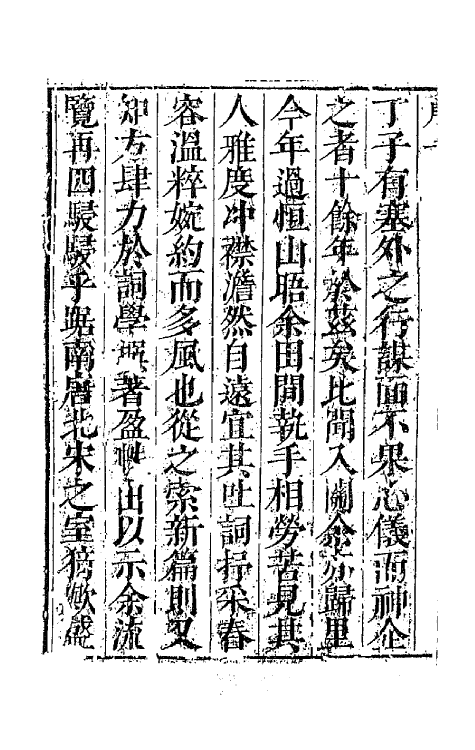 丁子有塞外之行謀面不果心儀而神企
之者十餘年於茲矣比聞入關余亦歸里
今年過恒山晤余田間執手相勞苦見其
人雅度冲襟澹然自遠宜其吐詞抒采春
容溫粹婉約而多風也從之索新篇則又
知方肆力於詞學所著盈帙出以示余流
覽再四駸駸乎踞南唐北宋之室猗歟盛